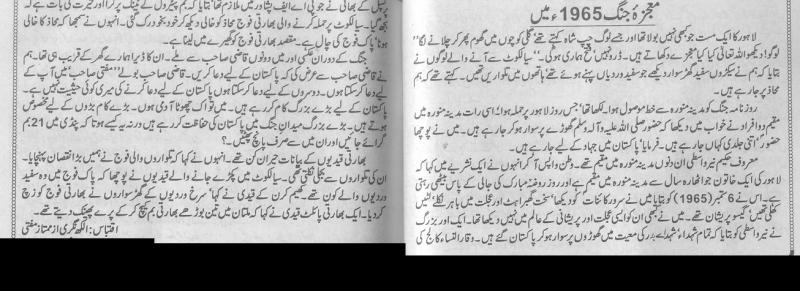 معجزۂ جنگ 1965ء میں
لاہور کا ایک مست جو کبھی نہیں بولا تھا اور جسے لوگ چپ شاہ کہتے تھے' گلی کوچوں میں گھوم پھر کر چلانے لگا"
لوگو! دیکھو اللہ تعالیٰ کیا کیا معجزے دکھاتے ہیں۔ ڈرو نہیں فتح ہماری ہوگی۔" سیالکوٹ سے آنے والے لوگوں نے
بتایا کہ ہم نے سینکڑوں سفید گھڑ سوار دیکھے جو سفید وردیاں پہنے ہوئے تھے' ہاتھوں میں تلواریں تھیں۔ کہتے تھے کہ ہم
محاذ پر جا رہے ہیں۔
روزنامہ جنگ کو مدینہ منورہ سے خط موصول ہوا' لکھا تھا' جس روز لاہور پر حملہ ہوا' اسی رات مدینہ منورہ میں
مقیم دو افراد نے خواب میں دیکھا کہ حضور صلی اللہ علیہ وآلہ وسلم گھوڑے پر سوار ہو کر جا رہے ہیں۔ میں نے پوچھا
حضور' اتنی جلدی کہاں جا رہے ہیں۔ فرمایا' پاکستان میں جہاد کے لیے جا رہے ہیں۔
معروف حکیم نیر واسطی ان دنوں مدینہ منورہ میں مقیم تھے۔ وطن واپس آ کر انہوں نے ایک نشریے میں کہا کہ
لاہور کی ایک خاتون جو اٹھارہ سال سے مدینہ منورہ میں مقیم ہے اور روز روضہ مبارک کی جالی کے پاس بیٹھی رہتی
ہے۔ اس نے 6 ستمبر (1965) کو بتایا میں نے سرور کائنات کو دیکھا' سخت گھبراہٹ اور عجلت میں باہر نکلے' لٹیں
کھلی تھیں' گیسو پریشان تھے۔ میں نے کبھی ان کو ایسی عجلت اور پریشانی کے عالم میں نہیں دیکھا تھا۔ ایک اور بزرگ
نے نیر واسطی کو بتایا کہ تمام شہداء' شہدائے بدر کی معیت میں گھوڑوں پر سوار ہو کر پاکستان گئے ہیں۔ وقار النساء کالج کی
پرنسپل کے بھائی نے جو پی اے ایف پشاور میں ملازم تھا' بتایا کہ بم پٹرول کے ٹینک پر گرا اور حیرت کی بات ہے کہ
بجھ گیا۔ سیالکوٹ پر حملہ کرنے والی بھارتی فوج محاذ کو خالی دیکھ کر خود بخود رک گئی۔ انہوں نے سمجھا کہ محاذ کا خالی
ہونا' پاک فوج کی چال ہے۔ مقصد بھارتی فوج کو گھیرے میں لینا ہے۔
جنگ کے دوران عکسی اور میں دونوں قاضی صاحب سے ملے۔ ان کا ڈیرا ہمارے گھر کے قریب ہی تھا۔ ہم
نے قاضی صاحب سے عرض کی کہ پاکستان کے لیے دعا کریں۔ قاضی صاحب بولے' "مفتی صاحب' میں آپ کے
لیے دعا کر سکتا ہوں۔ دوسروں کے لیے دعا کر سکتا ہوں' پاکستان کے لیے دعا کرنے کی میری کوئی حیثیت نہیں ہے۔
پاکستان کے لیے بڑے بڑے بزرگ کام کر رہے ہیں۔ میں تو اک چھوٹا آدمی ہوں۔ بڑے کام بڑوں کے لیے مخصوص
ہوتے ہیں۔ بڑے بزرگ میدان جنگ میں پاکستان کی حفاظت کر رہے ہیں ورنہ یہ کیسے ہوتا کہ پنڈی میں 21 بم
گرائے جائیں اور ان میں سے صرف پانچ پھٹیں۔؟
بھارتی قیدیوں کے بیانات حیران کن تھے۔ انہوں نے کہا کہ تلواروں والی فوج نے ہمیں بڑا نقصان پہنچایا۔
ان کی تلواروں سے بجلی نکلتی تھی۔ سیالکوٹ میں پکڑے جانے والے قیدیوں نے پوچھا کہ پاک فوج میں وہ سفید
وردیوں والے کون تھے۔ کھیم کرن کے قیدی نے کہا' سرخ وردیوں کے گھڑ سواروں نے بھارتی فوج کو زچ
کر دیا۔ ایک بھارتی پائلٹ قیدی نے کہا کہ ملتان میں تین بوڑھے بھارتی بم کیچ کر کے پرے پھینک دیتے تھے۔
اقتباس: الکھ نگری از ممتاز مفتی